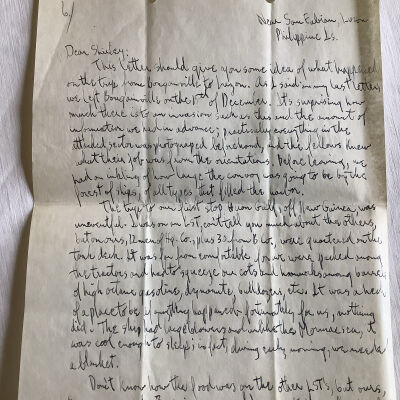 6/
Near San Fabian, Luzon
Philippine Is.
Dear Shirley:
This letter should give you some idea of what happened
on the trip from Bougainville to Luzon. As I said in my last letters
we left Bougainville on the 15th of December. It's surprising how
much there is to an invasion such as this and the amount of
information we had in advance; practically everything in the
attacked sector was photographed beforehand and the fellows knew
what their job was from the orientations. Before leaving, we
had an inkling of how large the convoy was going to be by the
forest of ships, of all types that filled the harbor.
The trip to our first stop Huon Gulf, off New Guinea was
uneventful. I was on an LST, can't tell you much about the others,
but on ours, 12 men of Hq. Co., plus 30 from B Co., were quartered on the
tank deck. It was far from comfortable for we were packed among
the tractors and had to squeeze our cots and hammocks among barrels
of high octane gasoline, dynamite, bulldozers, etc. It was a heck
of a place to be if anything happened - fortunately for us, nothing
did. The ship had huge blowers and unlike the, it
was cool enough to sleep; in fact, during early morning, we needed
a blanket.
Don't know how the food was on the other LST's, but ours,